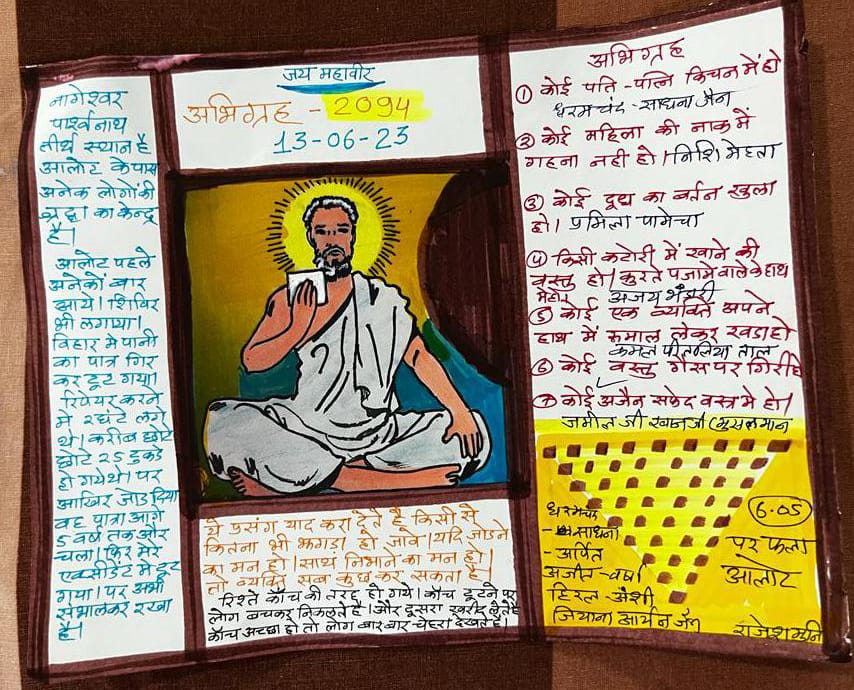 नागेश्वर
पार्श्वनाथ
तीर्थ स्थान है
आलोट के पास
अनेक लोगों की
श्रद्धा का केन्द्र
है।
आलोट पहले
अनेकों बार
आये। शिविर
भी लगाया।
विहार में पानी
का पात्र गिर
कर टूट गया।
रिपेयर करने
में २ घंटे लगे
थे। करीब छोटे
छोटे 25 टुकड़े
हो गये थे। पर
आखिर जोड़ दिया
वह पात्रा आगे
5 वर्ष तक और
चला। फिर मेरे
एक्सीडेंट में टूट
गया। पर अभी
संभालकर रखा
है।
जय महावीर
अभिग्रह - 2094
13-06-23
ये प्रसंग याद करा देते है किसी से
कितना भी झगड़ा हो जावे। यदि जोडने
का मन हो। साथ निभाने का मन हो।
तो व्यक्ति सब कुछ कर सकता है।
रिश्ते काँच की तरह हो गये। काँच टूटने पर
लोग बचकर निकलते है। और दूसरा खरीद लेते है
काँच अच्छा हो तो लोग बार-बार चेहरा देखते है।
अभिग्रह
① कोई पति-पत्नि किचन में हो
धरमचंद-साधना जैन
② कोई महिला की नाक में
गहना नही हो। निशि मेहता
③ कोई दूध का बर्तन खुला
हो। प्रमिला पामेचा
④ किसी कटोरी में खाने की
वस्तु हो। कुरते पजामे वाले के हाथ
में हो। अजय भंडारी
⑤ कोई एक व्यक्ति अपने
हाथ में रूमाल लेकर खडा हो
कमल पितलिया ताल
⑥ कोई वस्तु गैस पर गिरी हो
⑦ कोई अजैन सफेद वस्त्र में हो।
जमील जी खानजी (मुसलमान
धरमचंद
- साधना
- अर्पित
अजीत-वर्षा
हिरल-अंशी
जियाना आर्यन जैन
6.05
पर फला
आलोट
राजेश मुनि